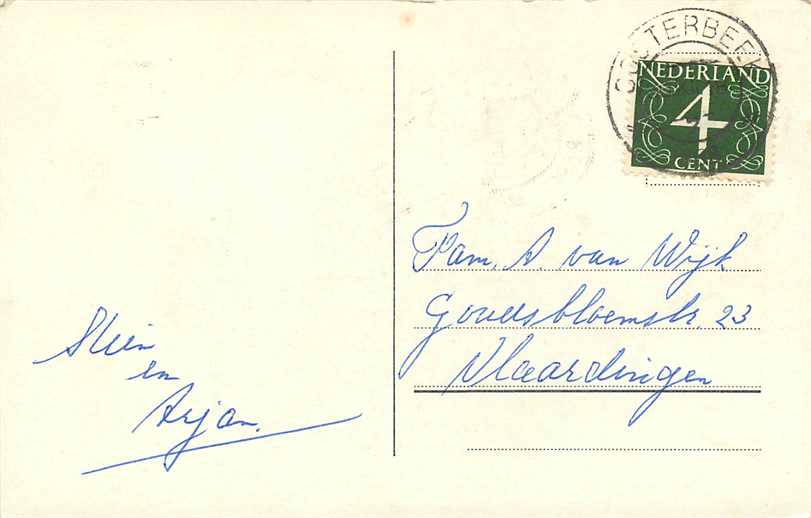 OOSTERBEEK
NEDERLAND
4
CENT
Fam. A. van Wijk
Goudsbloemstr 23
Vlaardingen
Stien
en
Arjan.